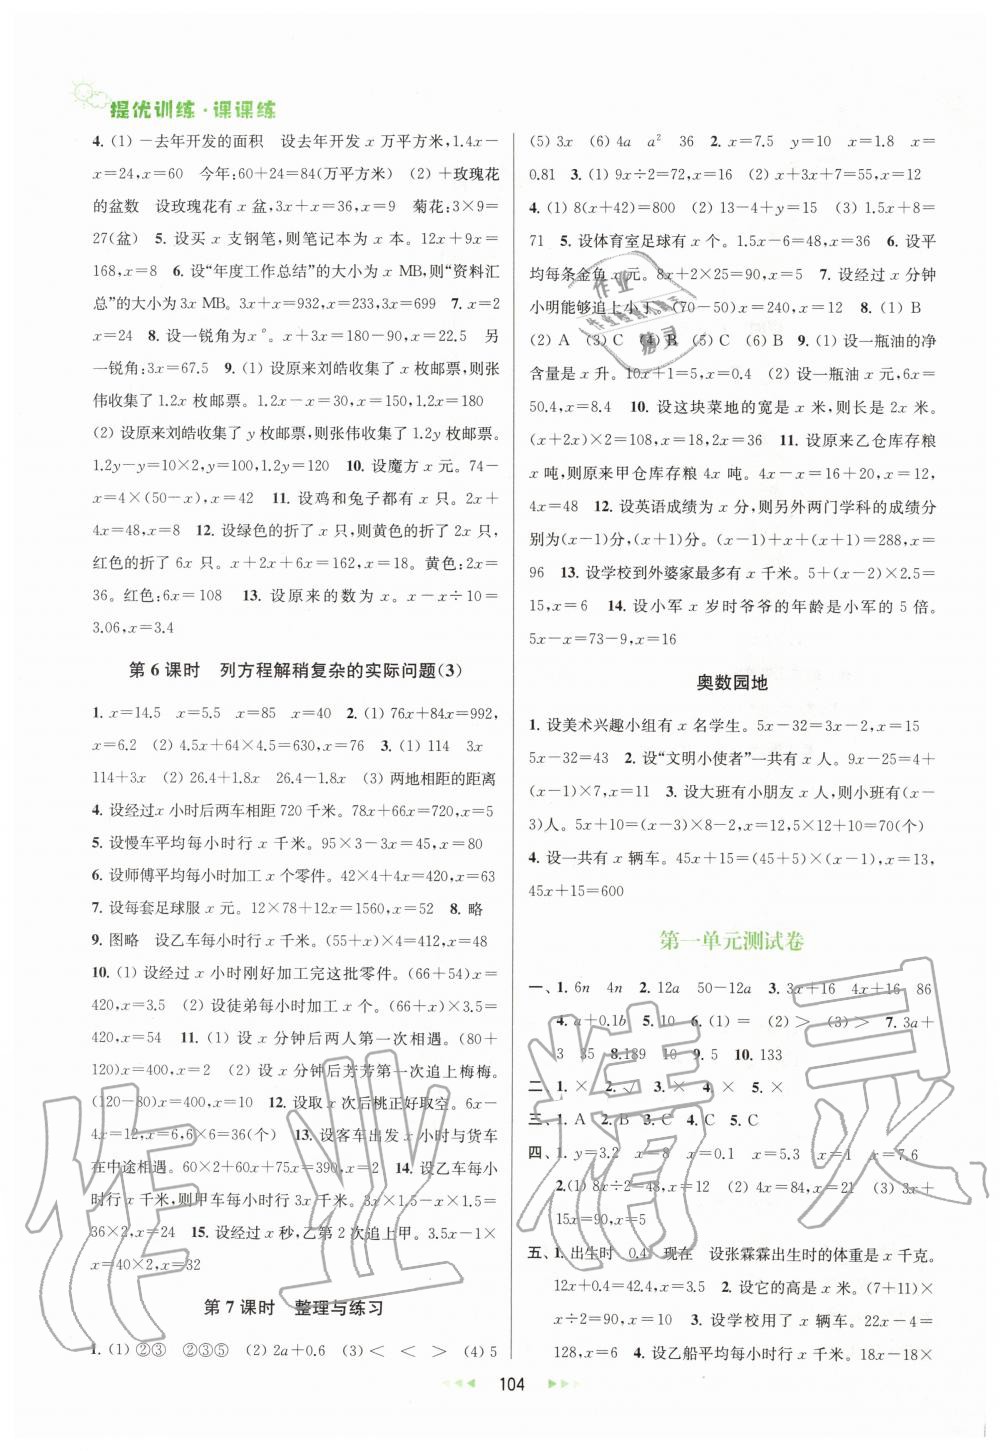 提优训练·课课练
4. (1) －去年开发的面积　设去年开发 x 万平方米,1.4x－
x＝24,x＝60　今年:60＋24＝84(万平方米)　(2) ＋玫瑰花
的盆数　设玫瑰花有 x 盆,3x＋x＝36,x＝9　菊花:3×9＝
27(盆)　5. 设买 x 支钢笔,则笔记本为 x 本。12x＋9x＝
168,x＝8　6. 设“年度工作总结”的大小为 x MB,则“资料汇
总”的大小为 3x MB。3x＋x＝932,x＝233,3x＝699　7. x＝2
x＝24　8. 设一锐角为 x°。x＋3x＝180－90,x＝22.5　另
一锐角:3x＝67.5　9. (1) 设原来刘皓收集了 x 枚邮票,则张
伟收集了 1.2x 枚邮票。1.2x－x＝30,x＝150,1.2x＝180
(2) 设原来刘皓收集了 y 枚邮票,则张伟收集了 1.2y 枚邮票。
1.2y－y＝10×2,y＝100,1.2y＝120　10. 设魔方 x 元。74－
x＝4×(50－x),x＝42　11. 设鸡和兔子都有 x 只。2x＋
4x＝48,x＝8　12. 设绿色的折了 x 只,则黄色的折了 2x 只,
红色的折了 6x 只。x＋2x＋6x＝162,x＝18。黄色:2x＝
36。红色:6x＝108　13. 设原来的数为 x。x－x÷10＝
3.06,x＝3.4
第 6 课时　列方程解稍复杂的实际问题(3)
1. x＝14.5　x＝5.5　x＝85　x＝40　2. (1) 76x＋84x＝992,
x＝6.2　(2) 4.5x＋64×4.5＝630,x＝76　3. (1) 114　3x
114＋3x　(2) 26.4＋1.8x　26.4－1.8x　(3) 两地相距的距离
4. 设经过 x 小时后两车相距 720 千米。78x＋66x＝720,x＝5
5. 设慢车平均每小时行 x 千米。95×3－3x＝45,x＝80
6. 设师傅平均每小时加工 x 个零件。42×4＋4x＝420,x＝63
7. 设每套足球服 x 元。12×78＋12x＝1560,x＝52　8. 略
9. 图略　设乙车每小时行 x 千米。(55＋x)×4＝412,x＝48
10. (1) 设经过 x 小时刚好加工完这批零件。(66＋54)x＝
420,x＝3.5　(2) 设徒弟每小时加工 x 个。(66＋x)×3.5＝
420,x＝54　11. (1) 设 x 分钟后两人第一次相遇。(120＋80)×
x＝400,x＝2　(2) 设 x 分钟后芳芳第一次追上梅梅。
(120－80)x＝400,x＝10　12. 设取 x 次后桃正好取空。6x－
4x＝12,x＝6,6×6＝36(个)　13. 设客车出发 x 小时与货车
在中途相遇。60×2＋60x＋75x＝390,x＝2　14. 设乙车每小时
行 x 千米,则甲车每小时行 3x 千米。3x×1.5－x×1.5＝
36×2,x＝24　15. 设经过 x 秒,乙第 2 次追上甲。3.5x－1×
x＝40×2,x＝32
第 7 课时　整理与练习
1. (1) ②③　②③⑤　(2) 2a＋0.6　(3) ＜　＜　＞　(4) 5
(5) 3x　(6) 4a　a²　36　2. x＝7.5　y＝10　x＝1.8　x＝
0.81　3. (1) 9x÷2＝72,x＝16　(2) x＋3x＋7＝55,x＝12
4. (1) 8(x＋42)＝800　(2) 13－4＋y＝17　(3) 1.5x＋8＝
71　5. 设体育室足球有 x 个。1.5x－x＝18,x＝36　6. 设平
均每条金鱼 x 元。8x＋2×25＝90,x＝5　7. 设经过 x 分钟
小明能够追上小丁。(70－50)x＝240,x＝12　8. (1) B
(2) A　(3) C　(4) B　(5) C　(6) B　9. (1) 设一瓶油的净
含量是 x 升。10x＋1＝5,x＝0.4　(2) 设一瓶油 x 元,6x＝
50.4,x＝8.4　10. 设这块菜地的宽是 x 米,则长是 2x 米。
(x＋2x)×2＝108,x＝18,2x＝36　11. 设原来乙仓库存粮
x 吨,则原来甲仓库存粮 4x 吨。4x－x＝16＋20,x＝12,
4x＝48　12. 设英语成绩为 x 分,则另外两门学科的成绩分
别为(x－1)分,(x＋1)分。(x－1)＋x＋(x＋1)＝288,x＝
96　13. 设学校到外婆家最多有 x 千米。5＋(x－2)×2.5＝
15,x＝6　14. 设小军 x 岁时爷爷的年龄是小军的 5 倍。
5x－x＝73－9,x＝16
奥数园地
1. 设美术兴趣小组有 x 名学生。5x－32＝3x－2,x＝15
5x－32＝43　2. 设“文明小使者”一共有 x 人。9x－25＝4＋
(x－1)×7,x＝11　3. 设大班有小朋友 x 人,则小班有(x－
3)人。5x＋10＝(x－3)×8－2,x＝12,5×12＋10＝70(个)
4. 设一共有 x 辆车。45x＋15＝(45＋5)×(x－1),x＝13,
45x＋15＝600
第一单元测试卷
一、1. 6n　4n　2. 12a　50－12a　3. 3x＋16　4x＋16　86
4. a＋0.1b　5. 10　6. (1) ＝　(2) ＞　(3) ＞　7. 3a＋
3　35　8. 189　10　9. 5　10. 133
二、1. ×　2. √　3. ×　4. ×　5. ×
三、1. A　2. B　3. C　4. C　5. C
四、1. y＝3.2　x＝8　x＝0.1　x＝5.3　x＝1　x＝7.6
2. (1) 8x÷2＝48,x＝12　(2) 4x＝84,x＝21　(3) 3x＋
15x＝90,x＝5
五、1. 出生时　0.4　现在　设张霖霖出生时的体重是 x 千克。
12x＋0.4＝42.4,x＝3.5　2. 设它的高是 x 米。(7＋11)×
x÷2＝90,x＝10　3. 设学校用了 x 辆车。22x－4＝
128,x＝6　4. 设乙船平均每小时行 x 千米。18x－18×
104
作业精灵